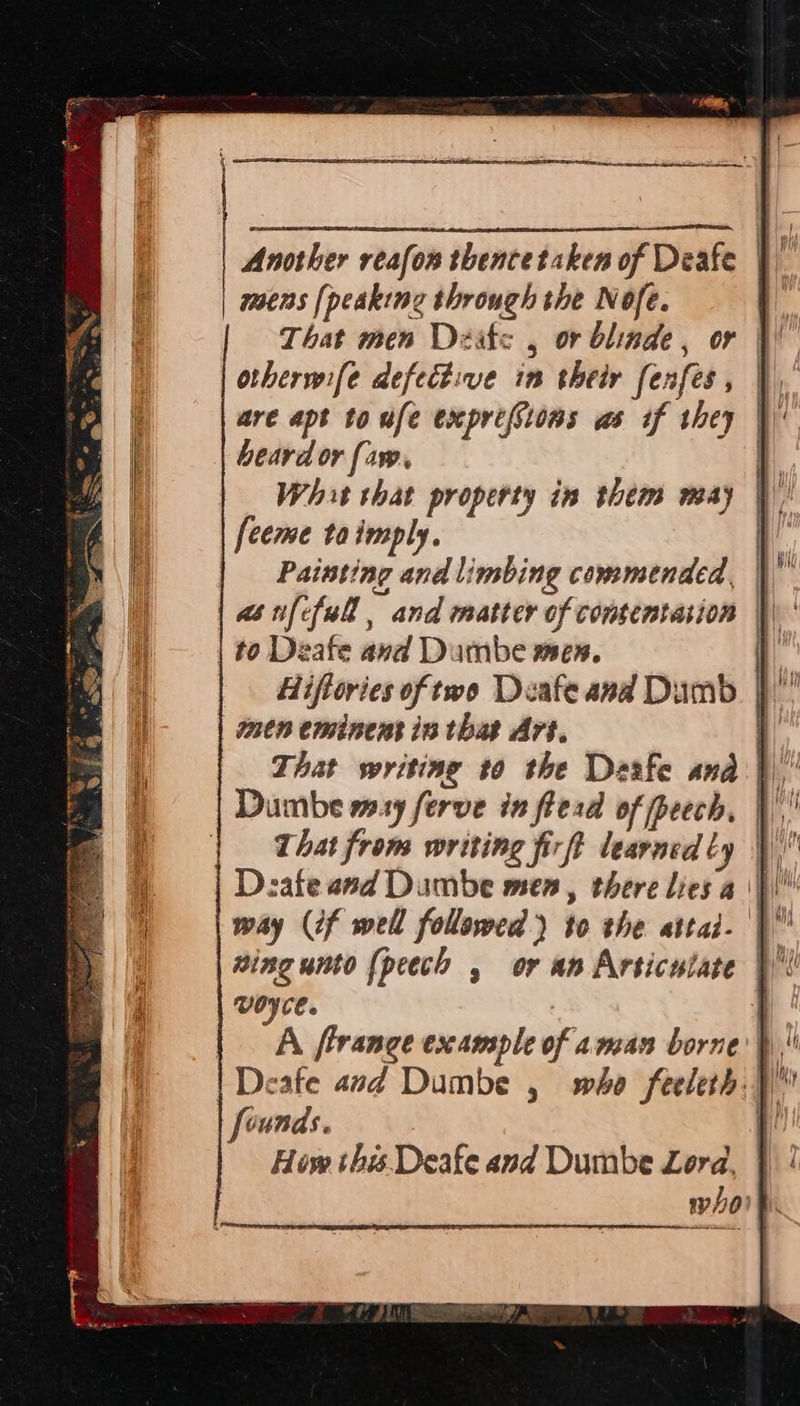 Another reaſon thence taken of Deafe
mens ſpeaking through the Noſe.
That men Deafe , or blinde , or
otherwiſe defective in their ſenſes ,
are apt to uſe expreſsions as if they
heard or ſaw.
What that property in them may
ſeeme to imply.
Painting and limbing commended,
as uſefull , and matter of contentation
to Deafe and Dumbe men.
Hiſtories of two Deafe and Dumb
men eminent in that Art.
That writing to the Deafe and
Dumbe may ſerve in ſtead of ſpeech.
That from writing firſt learned by
Deafe and Dumbe men , there lies a
way (if well followed) to the attai-
ning unto ſpeech , or an Articulate
voyce.
A ſtrange example of a man borne
Deafe and Dumbe , who feeleth
ſounds.
How this Deafe and Dumbe Lord,
who